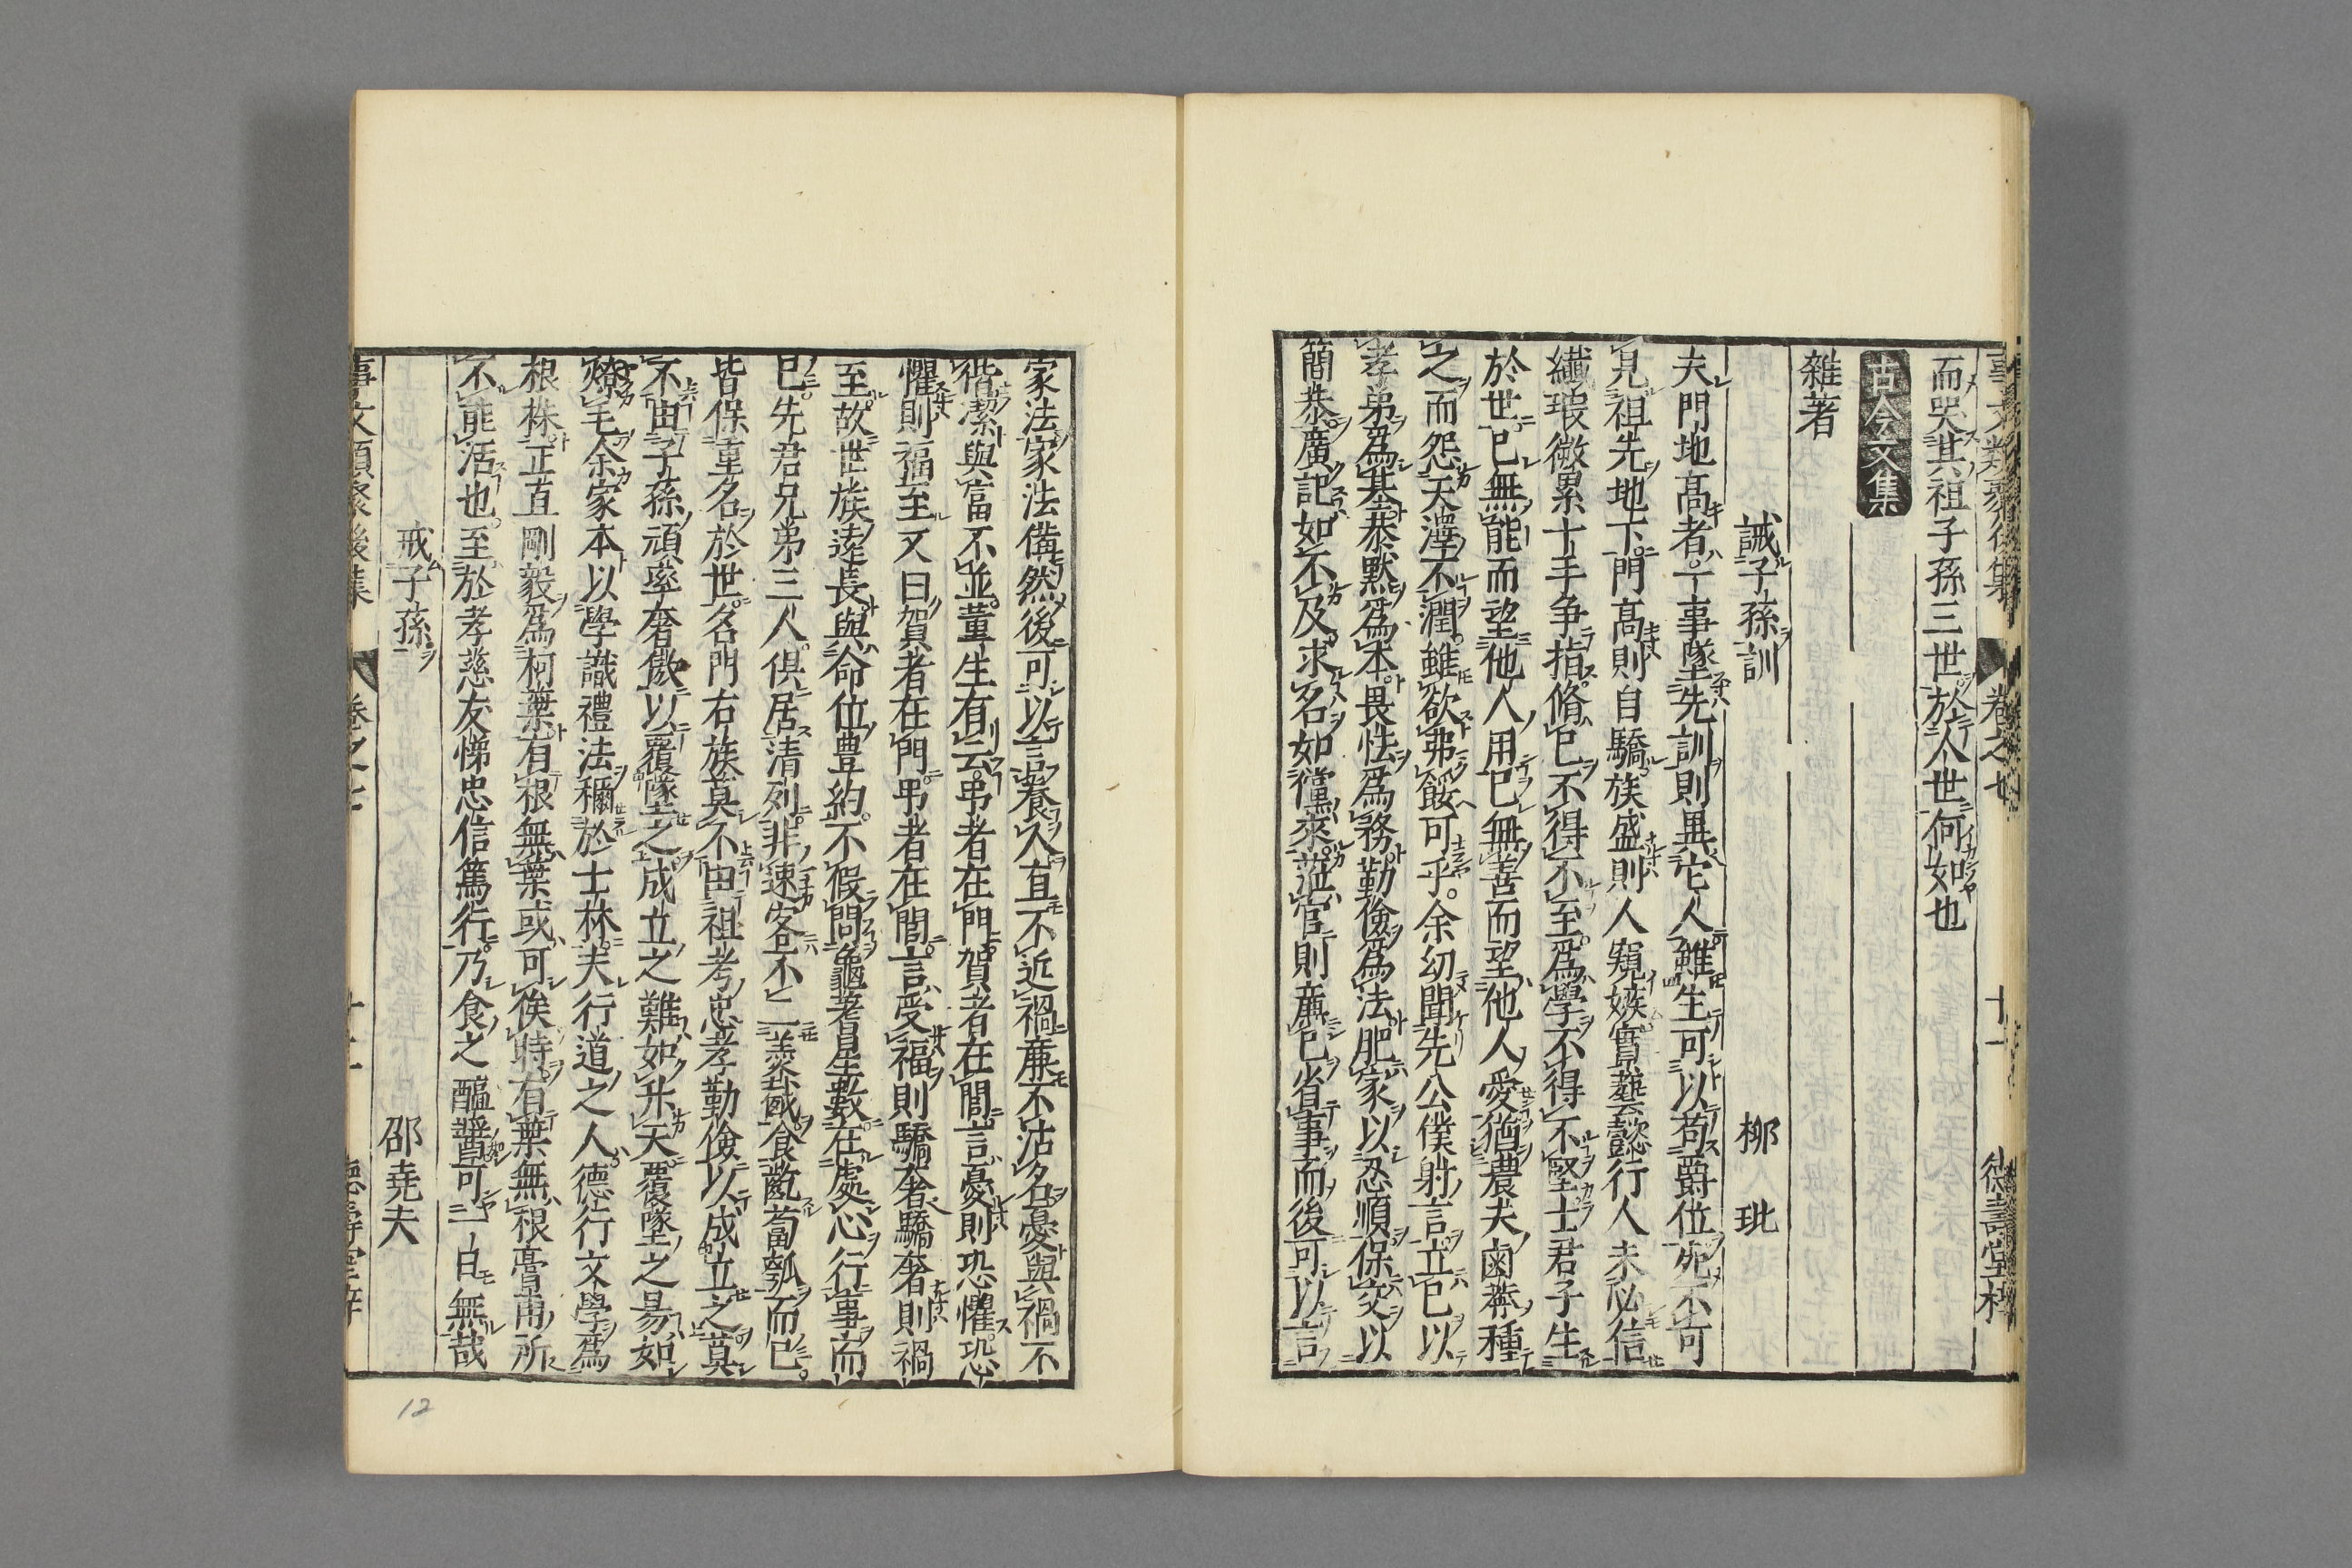 而哭其祖子孫三世於人世何如也
古今文集
雜著
誡子孫訓 柳玭
夫門地髙者一事墜先訓則異它人雖生可以苟爵位死不可
見祖先地下門高則自驕族盛則人窺嫉實藝懿行人未必信
纎瑕微累十手争指脩己不得不至爲學不得不堅士君子生
於世已無能而望他人用已無善而望他人愛猶農夫鹵莽種
之而怨天澤不潤雖欲弗餒可乎余幼聞先公僕射言立已以
孝弟爲基恭黙爲本畏怯爲務勤儉爲法肥家以忍順保交以
簡恭廣記如不及求名如儻來蒞官則廉已省事而後可以言
家法家法備然後可以言養人直不近禍廉不沽名憂與禍不
偕潔與富不並董生有云弔者在門賀者在閭言憂則恐懼恐
懼則福至又曰賀者在門弔者在閭言受福則驕奢驕奢則禍
至故世族遠長與命位豊約不假問龜蓍星數在處心行事而
已先君兄弟三人俱居清列非速客不二羹胾食齕蔔瓠而已
皆保重名於世名門右族莫不由祖考忠孝勤儉以成立之莫
不由子孫頑率奢傲以覆墜之成立之難如升天覆墜之昜如
燎毛余家本以學識禮法稱於士林夫行道之人德行文學爲
根株正直剛毅爲柯葉有根無葉或可俟時有葉無根膏雨所
不能活也至於孝慈友悌忠信篤行乃食之醯醬可一日無哉
戒子孫 邵堯夫
12